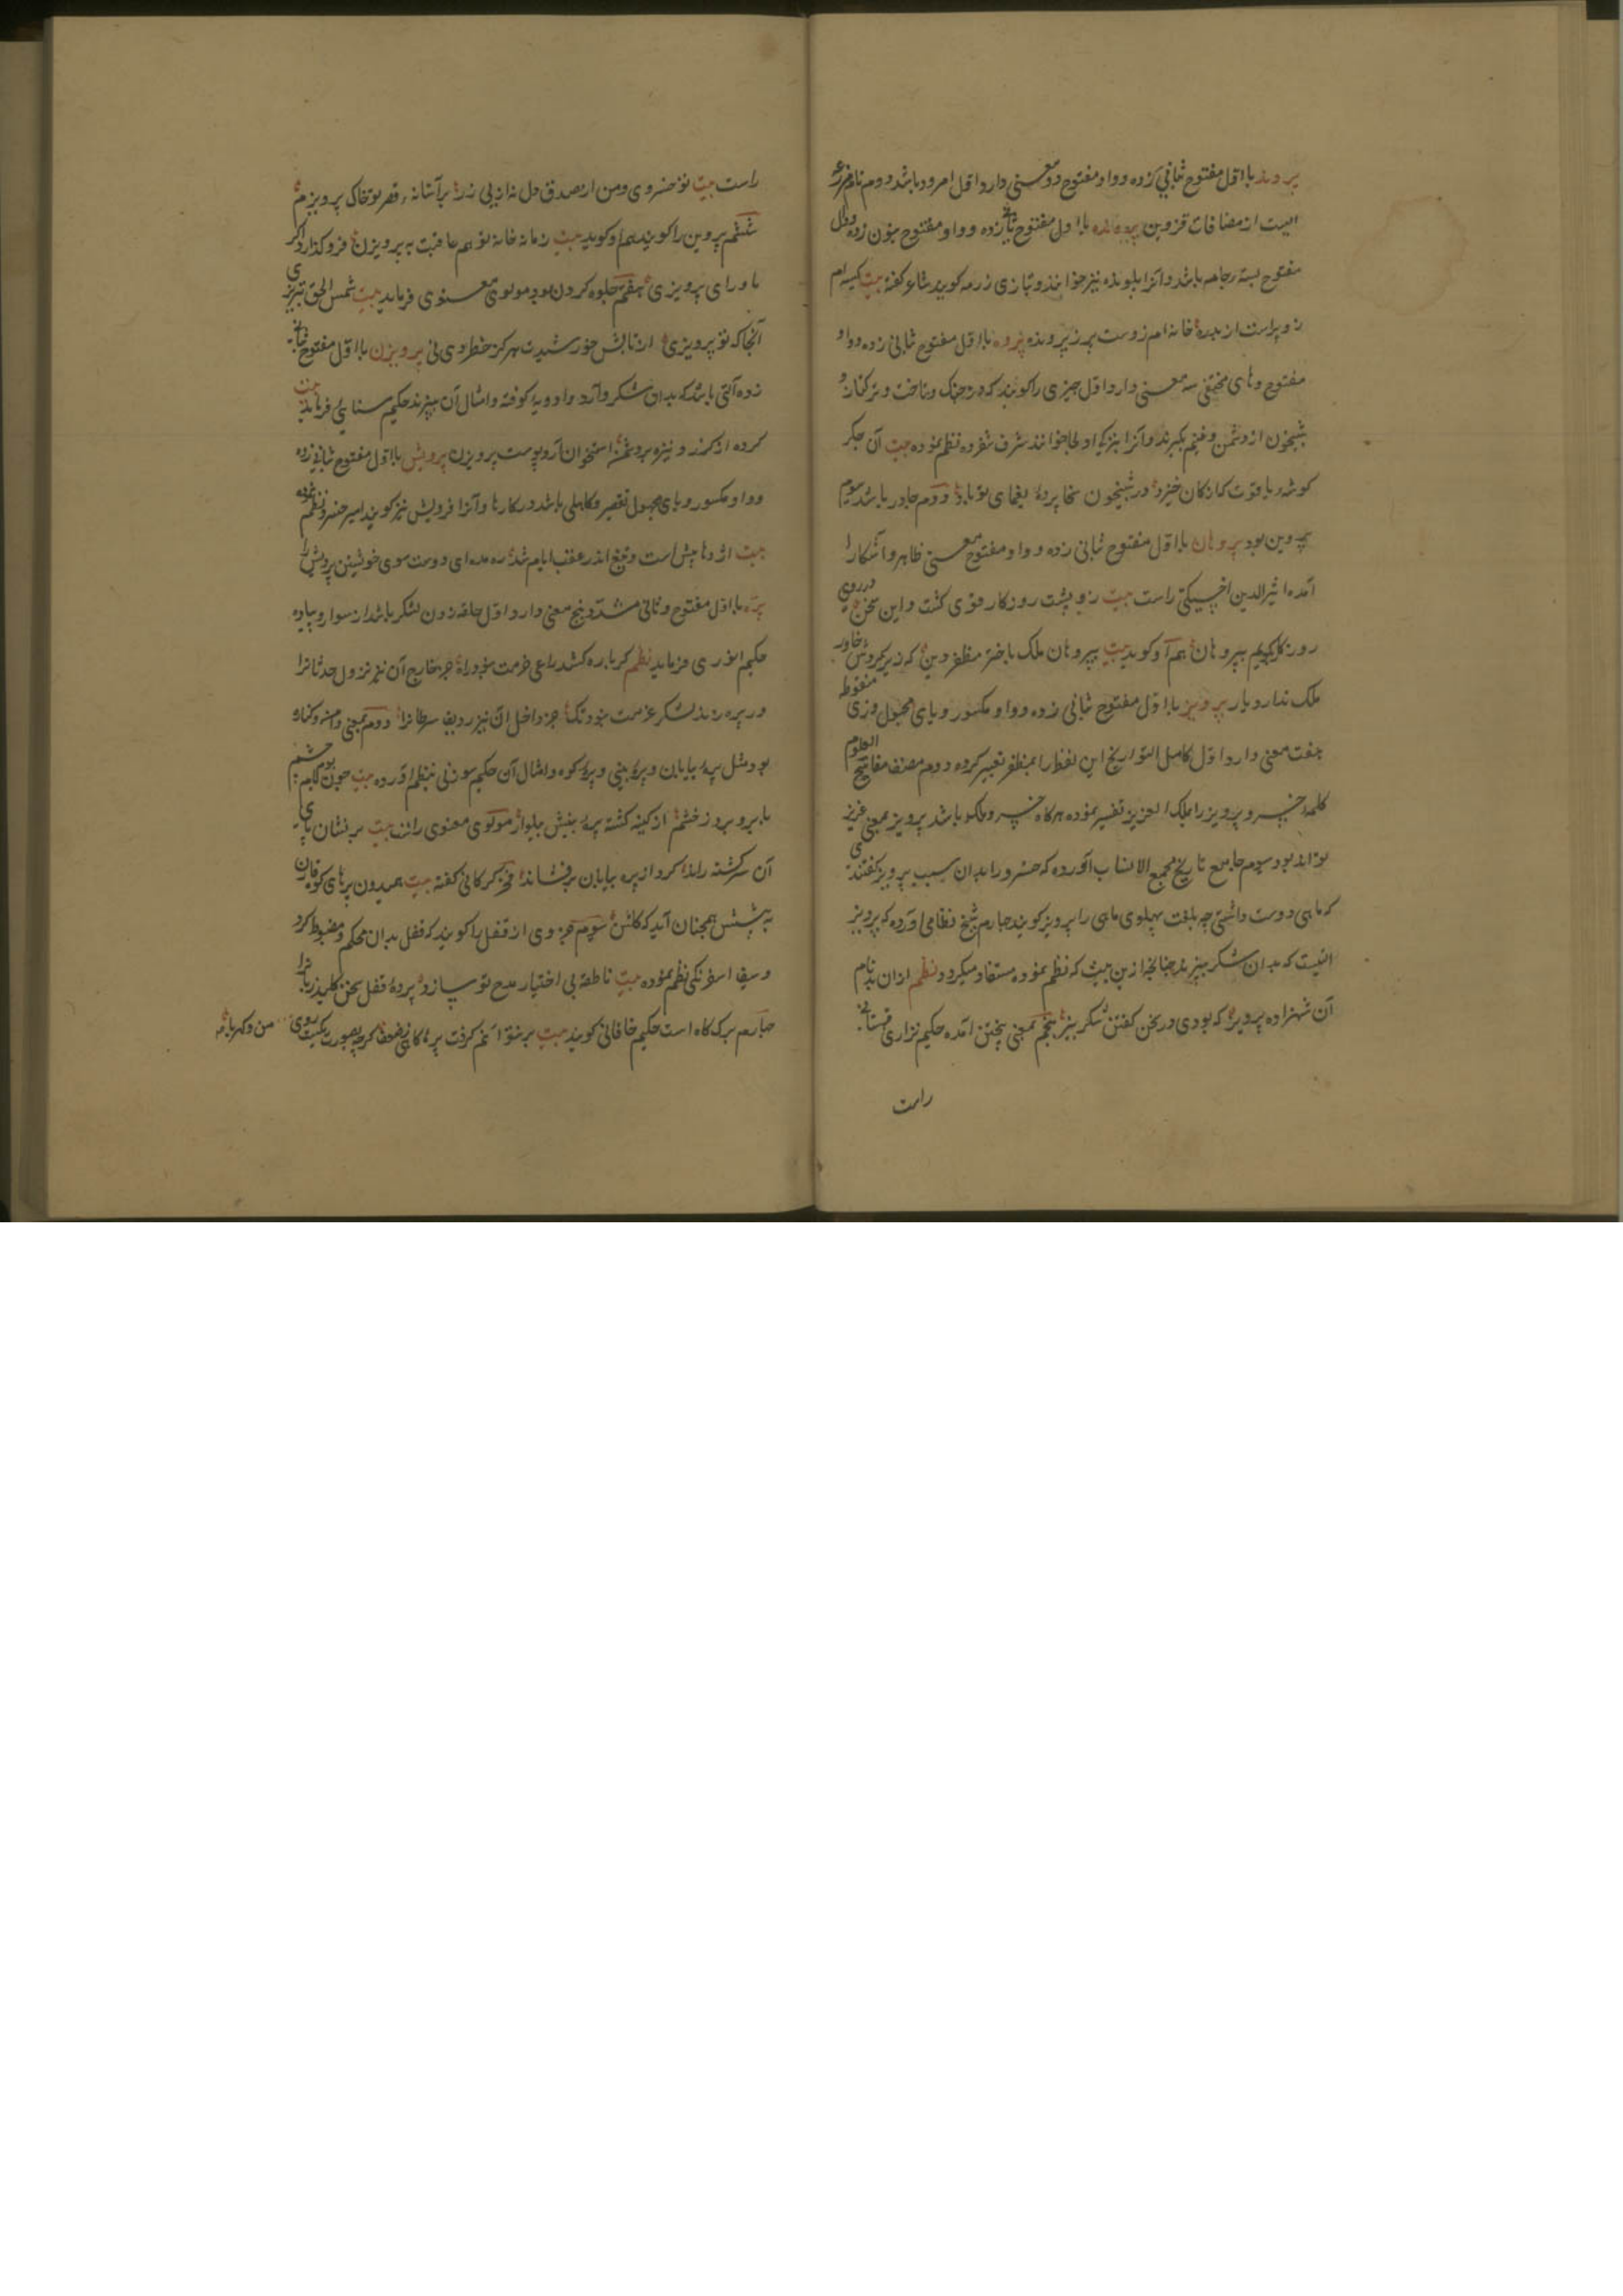 پروند بااول مفتوح بثانی زده وواو مفتوح دو معنی دارد اول امرود باشد دوم نام مزرعه
ایست از مضافات قزوین پرونده بااول مفتوح بثانی زده وواو مفتوح بنون زده ودال
مفتوح بسته جامه باشد وآنرا بلونده نیز خوانند وبتازی رزمه کویند شاعر کفته بیت کیسه ام
زو پراست از بدره خانه ام زوست پر ز پرونده پروه بااول مفتوح ثانی زده وواو
مفتوح وهای مختفی سه معنی دارد اول چیزی راکویند که در جنک وتاخت و ترکتاز و
شبیخون از دشمن وغنیم بکیرند وآنرا بترکی اولجا خوانند شرف شفروه نظم نموده بیت آن جکر
کوشه یاقوت که از کان خیزد در شبیخون سخا پروه یغمای تو باد دوم چادر باشد سیوم
پروین بود پروهان بااول مفتوح ثانی زده و واو مفتوح معنی ظاهر واشکارا
آمده اثیرالدین اخسیکتی راست بیت زو پشت روزکار قوی کشت واین سخن در روی
روزکار بکویم بپروهان هم او کوید بیت بپروهان ملک باختر مظفر دین که زیر خاور
ملک ندارد یار پرویز بااول مفتوح ثانی زده وواو مکسور ویای مجهول وزای منقوطه
هفت معنی دارد اول کامل التواریخ این لفظ را بمظفر تعبیر کرده دوم مصنف مفاتیح العلوم
کلمه خسرو پرویز را بملک العزیز تفسیر نموده هرکاه خسرو ملک باشد پرویز بمعنی عزیز
تواند بود سیوم جامع تاریخ مجمع الانساب آورده که خسرو را بدان سبب پرویز کفتندی
که ماهی دوست داشتی چه بلغت پهلوی ماهی را پرویز کویند چارم شیخ نظامی آورده که پرویز
آلتیست که بدان شکر بیزند چنانچه ازین بیت که نظم نموده مستفاد میکردد نظم ازان بد نام
آن شهزاده پرویز که بودی در سخن کفتن شکر بیز پنجم بمعنی بیختن آمده حکیم نزاری قهستانی
راست
راست بیت تو خسروی ومن از صدق دل نه از پی زر بر آستانه قصر تو خاک پرویزم
ششم پروین را کویند هم او کوید بیت زمانه خانه تو هم عاقبت به پرویزن فرو کذارد اکر
ماورای پرویزی هفتم جلوه کردن بود مولوی معنوی فرماید بیت شمس الحق تبریزی
آنجا که تو پرویزی از تابش خورشیدت هرکز خطر دی نی پرویزن بااول مفتوح بثانی
زده آلتی باشد که بدان شکر وآرد وادویه کوفته وامثال آن بیزند حکیم سنائی فرماید بیت
کرده از کرز و نیزه بر دشمن استخوان آرد وپوست پرویزن پرویش بااول مفتوح بثانی زده
وواو مکسور ویای مجهول تقصیر وکاهلی باشد در کارها وآنرا فرویش نیز کویند امیر خسرو نظم نموده
بیت
پره بااول مفتوح وثانی مشدد پنج معنی دارد اول حلقه زدن لشکر باشد از سوار وپیاده
حکیم انوری فرماید نظم کر باره کشد راعی حزمت نبود راه جز خارج آن نیز نزول حدثانرا
ور پره زند لشکر عزمت نبود تک جز داخل آن نیز ردیف سرطانرا دوم بمعنی دامنه وکناره
بود مثل پره بیابان وپره بینی وپره کوه وامثال آن حکیم سوزنی بنظم آورده بیت چون
از کینه کشته پره بینیش پیلوار مولوی معنوی راست بیت بر نشان پای
آن سرکشته راند کرد از پره بیابان بر فشاند فخر کرکانی کفته بیت همیدون پرهای کوه قارن
به پشتش همچنان آید که کلشن سیوم جزوی از قفل را کویند که قفل بدان محکم ومضبوط کردد
وسیف اسفرنکی نظم نموده بیت ناطقه بی اختیار مدح تو سازد پره قفل سخن کلید زبانرا
چارم برک کاه است حکیم خاقانی کوید بیت